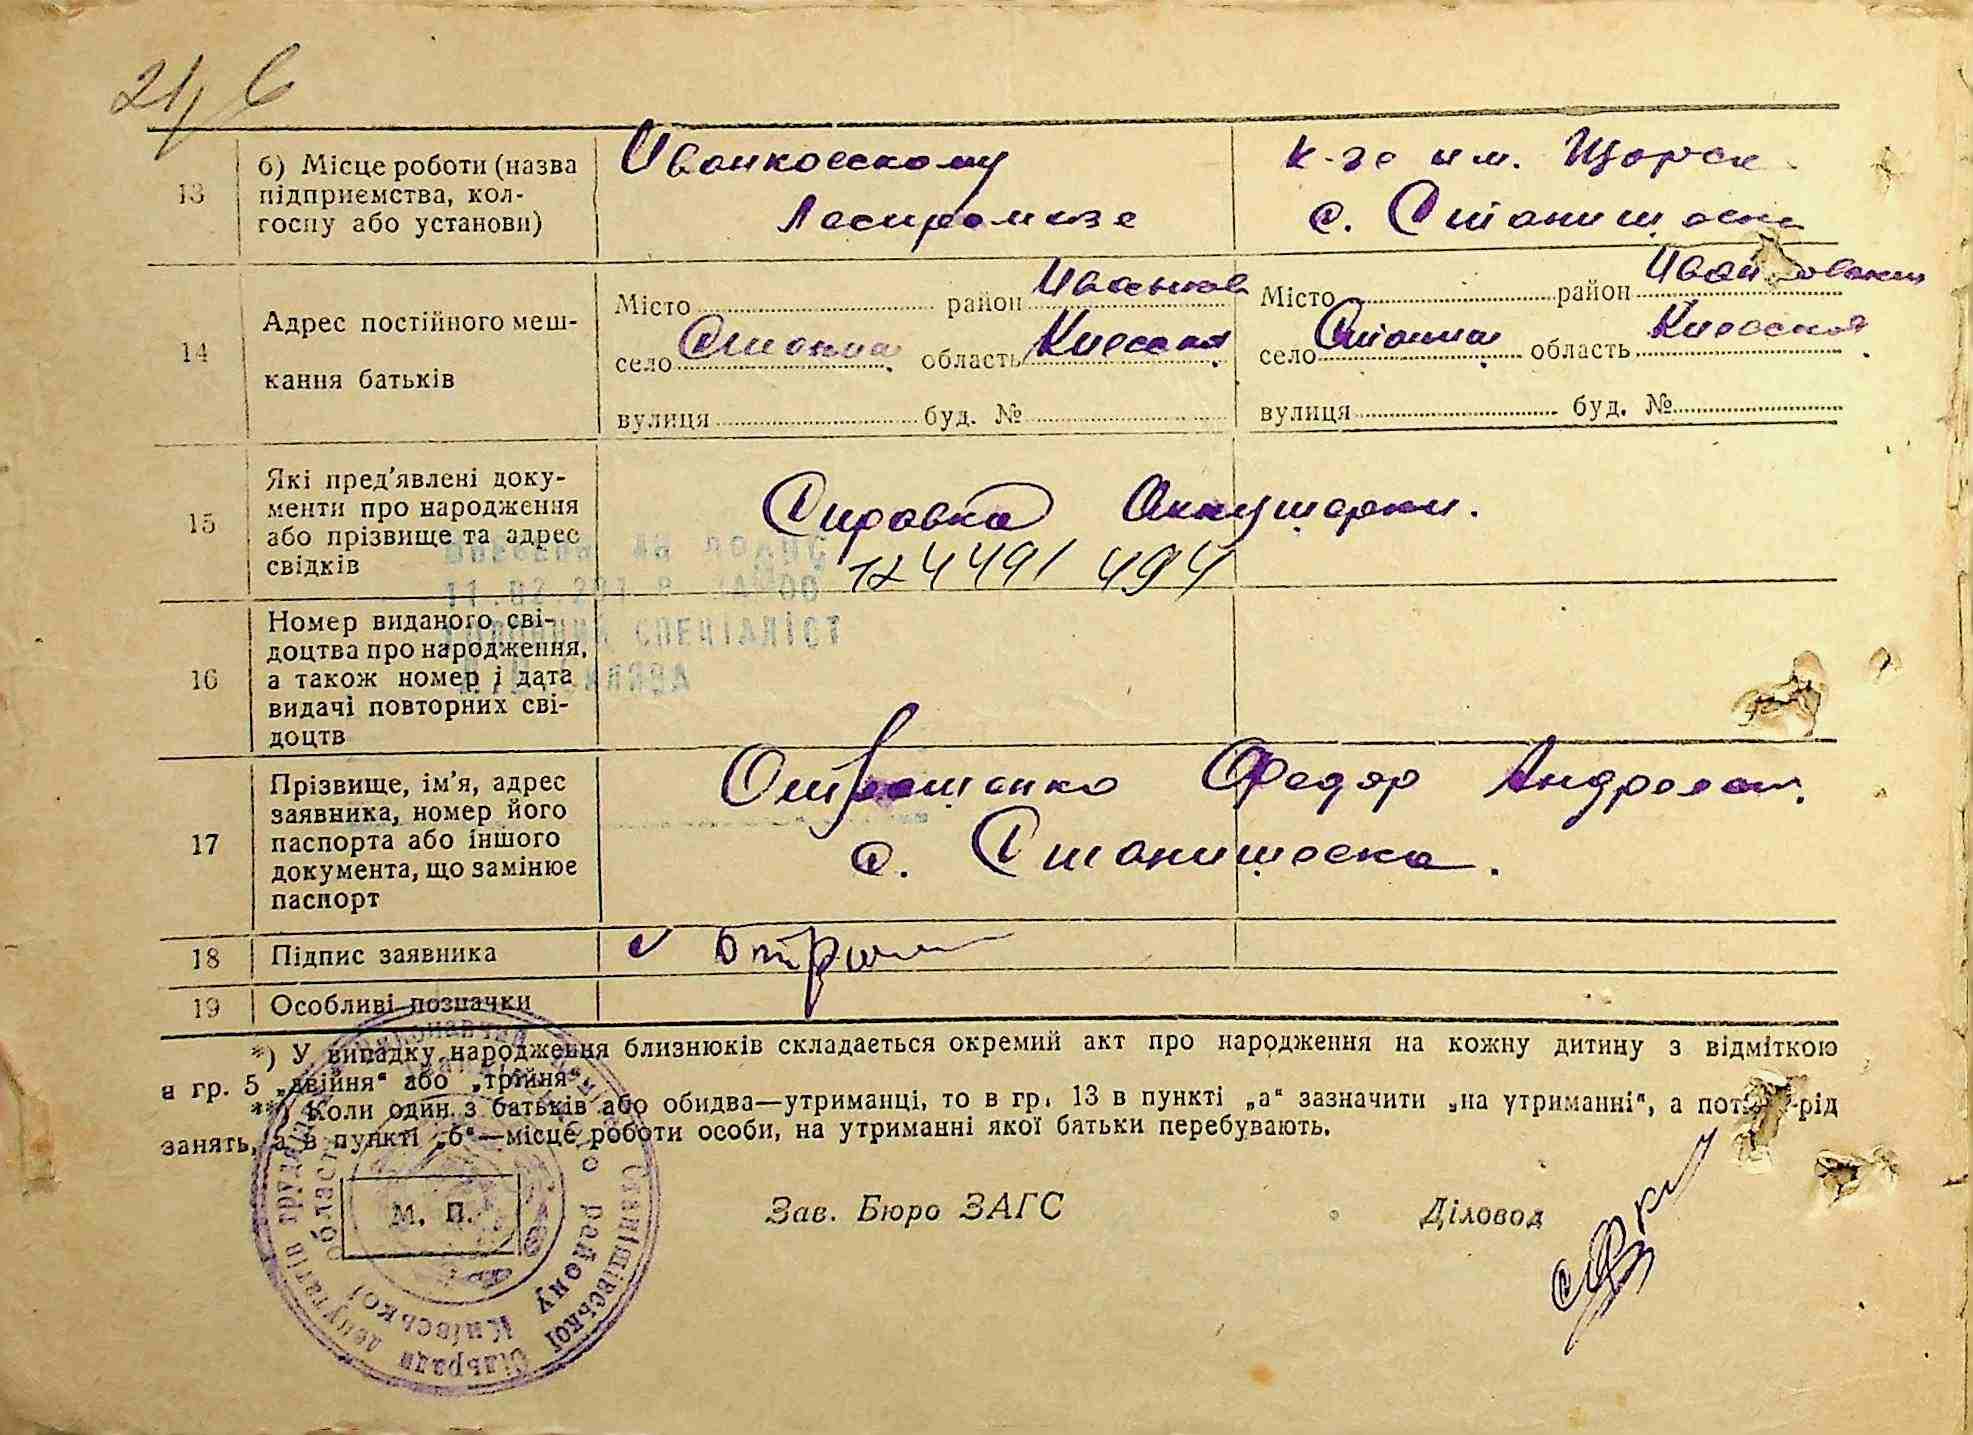 21, 6
13
б) Місце роботи (назва
підприємства, кол-
госпу або установи)
Иванковскому
Леспромхозе
к-зе им. Щорса
с. Станишовка
14
Адрес постійного меш-
кання батьків
Місто район Иванков
село Станиш. область Киевская
вулиця буд. №
Місто район Иванковский
село Станиш. область Киевской
вулиця буд. №
15
Які пред'явлені доку-
менти про народження
або прізвище та адрес
свідків
Справка Аккушерки.
124491 494
СПЕЦІАЛІСТ
16
Номер виданого сві-
доцтва про народження,
а також номер і дата
видачі повторних сві-
доцтв
17
Прізвище, ім'я, адрес
заявника, номер його
паспорта або іншого
документа, що замінює
паспорт
Федор
с. Станишовка.
18
Підпис заявника
19
Особливі позначки
*) У випадку народження близнюків складається окремий акт про народження на кожну дитину з відміткою
в гр. 5 „двійня“ або „трійня“.
**) Коли один з батьків або обидва—утриманці, то в гр. 13 в пункті „а“ зазначити „на утриманні“, а потім рід
занять, а в пункті „б“—місце роботи особи, на утриманні якої батьки перебувають.
М. П.
Зав. Бюро ЗАГС
Діловод
Станішівської сільради депутатів трудящих
району Київської області